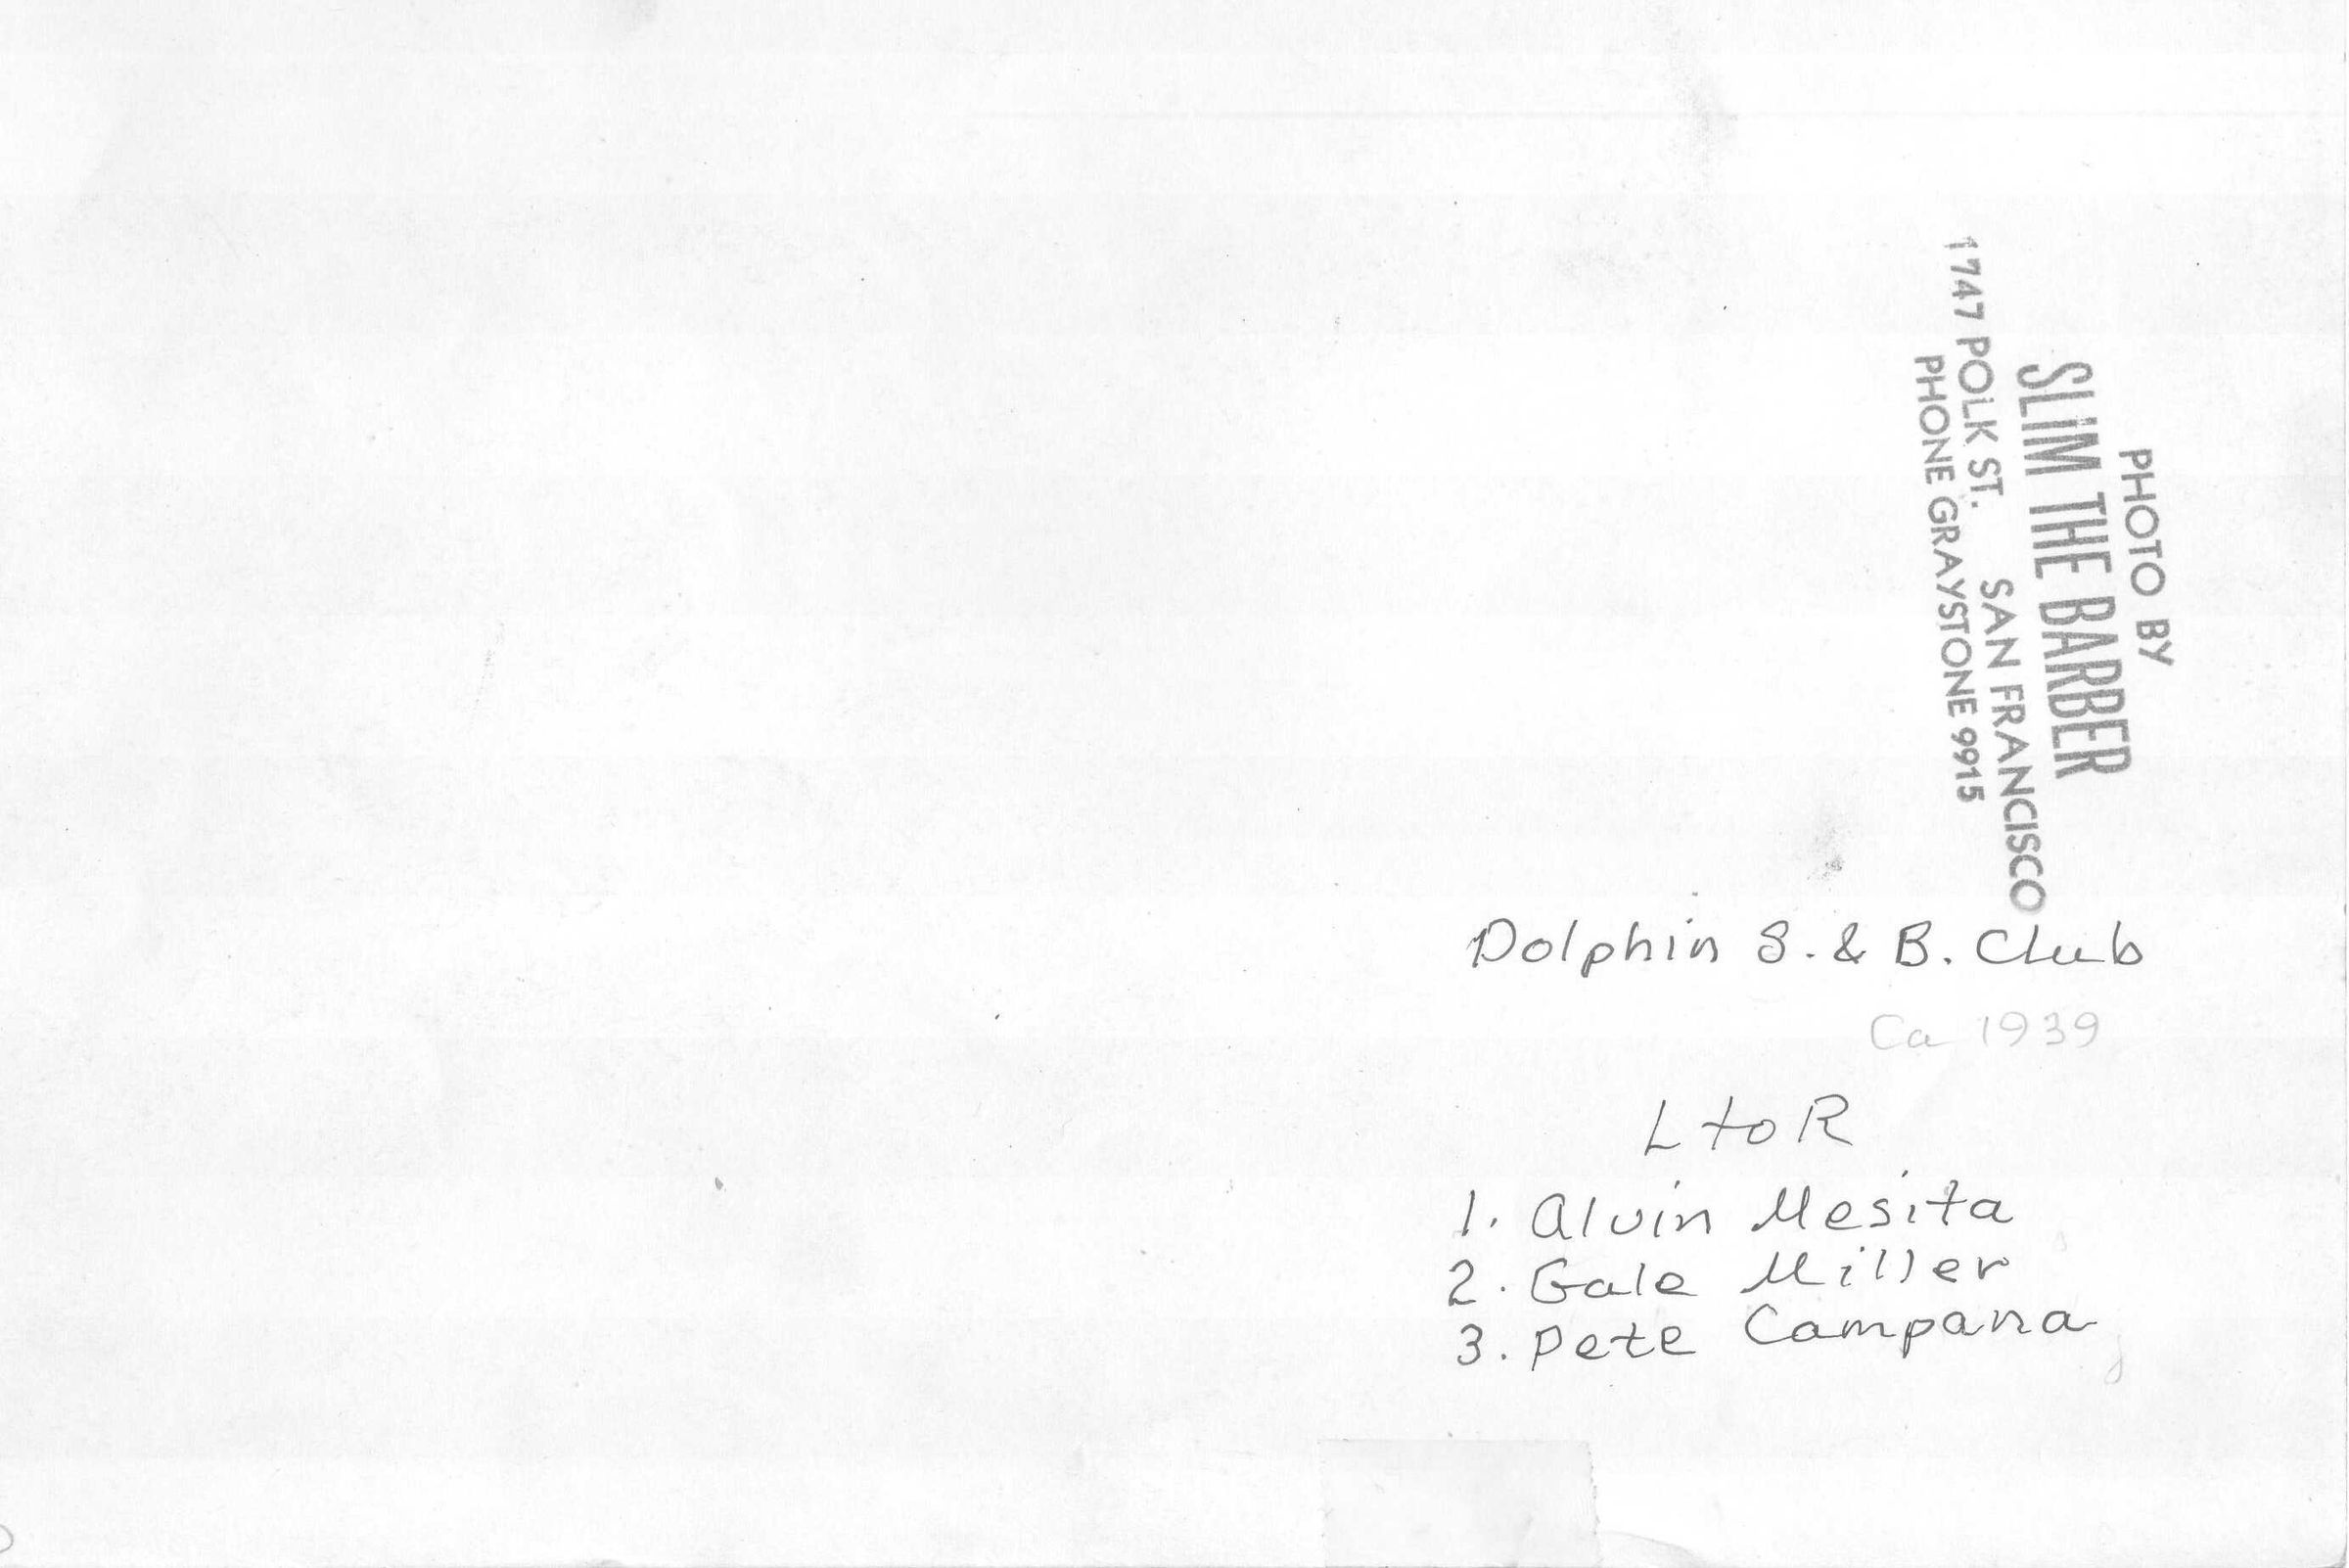 PHOTO BY
SLIM THE BARBER
1747 POLK ST. SAN FRANCISCO
PHONE GRAYSTONE 9915
Dolphin S. & B. Club
Ca 1939
L to R
1. Alvin Mesita
2. Gale Miller
3. Pete Campana